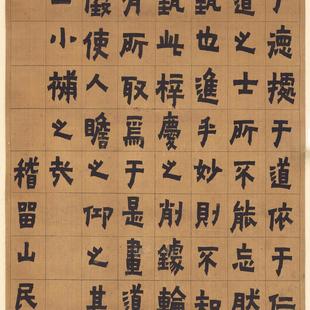 于德據于道依于仁
道之士所不能忘然
藝也進乎妙則不知
藝此梓慶之削鐻輪
有所取焉于是畫道
使人瞻之仰之其
小補之哉
稽留山民